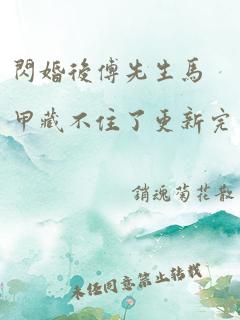 閃婚後傅先生馬
甲藏不住了更新完
銷魂菊花散
未經同意禁止轉載